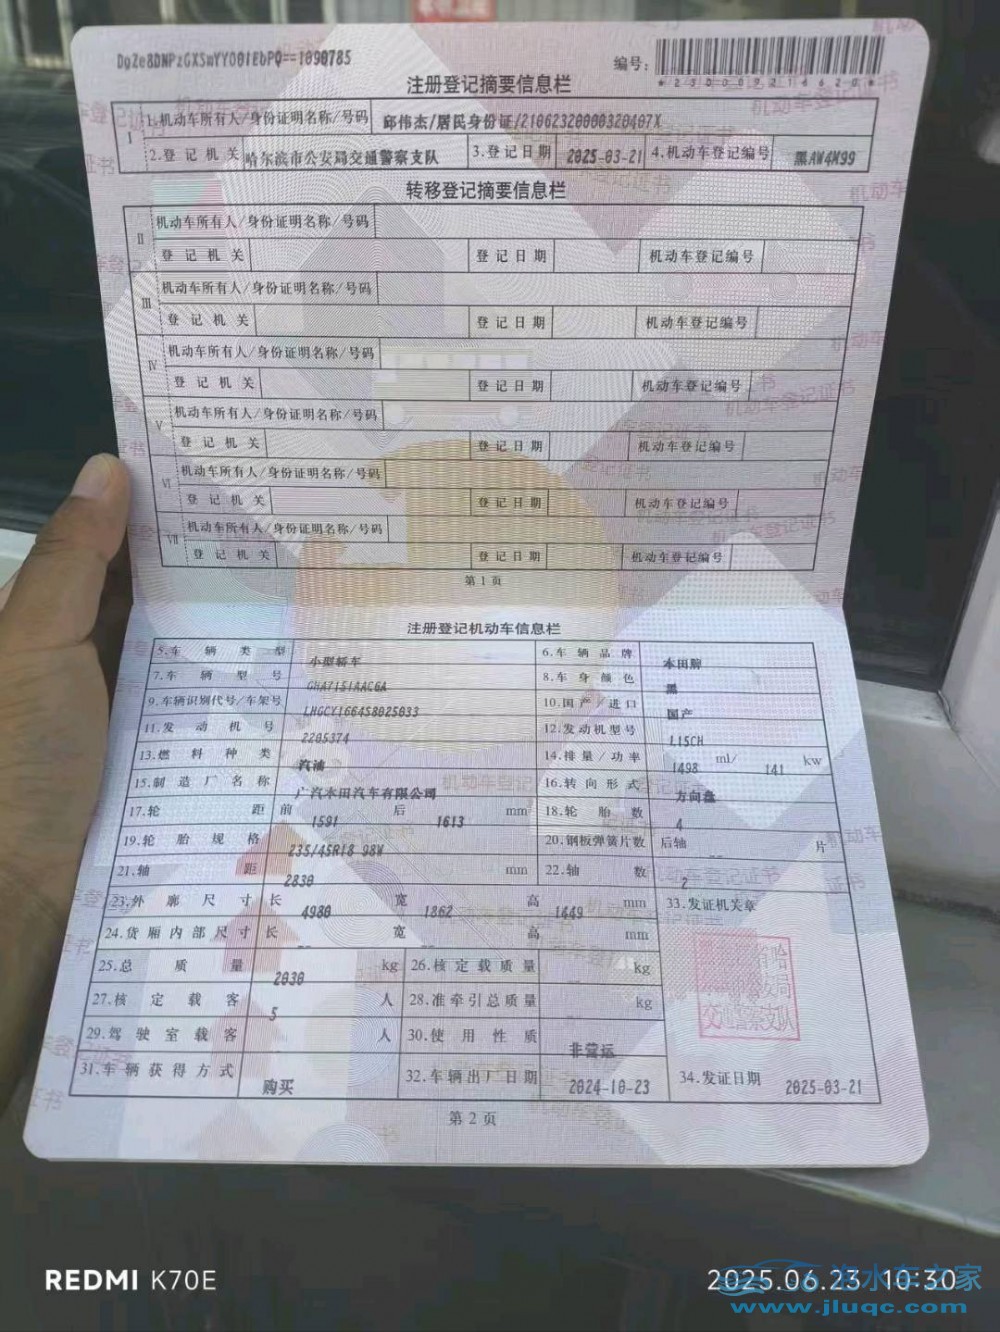 DgZe8DNPzGXSmYYO01EbPQ==1090785
编号:
*230009214620*
注册登记摘要信息栏
I 1.机动车所有人/身份证明名称/号码 邱伟杰/居民身份证/21062320000320407X
2.登记机关 哈尔滨市公安局交通警察支队 3.登记日期 2025-03-21 4.机动车登记编号 黑AW4M99
转移登记摘要信息栏
II 机动车所有人/身份证明名称/号码
登记机关 登记日期 机动车登记编号
III 机动车所有人/身份证明名称/号码
登记机关 登记日期 机动车登记编号
IV 机动车所有人/身份证明名称/号码
登记机关 登记日期 机动车登记编号
V 机动车所有人/身份证明名称/号码
登记机关 登记日期 机动车登记编号
VI 机动车所有人/身份证明名称/号码
登记机关 登记日期 机动车登记编号
VII 机动车所有人/身份证明名称/号码
登记机关 登记日期 机动车登记编号
第1页
注册登记机动车信息栏
5.车辆类型 小型轿车 6.车辆品牌 本田牌
7.车辆型号 GHA7151AAC6A 8.车身颜色 黑
9.车辆识别代号/车架号 LHGCY1664S8025033 10.国产/进口 国产
11.发动机号 2205374 12.发动机型号 L15CH
13.燃料种类 汽油 14.排量/功率 1498 ml/ 141 kw
15.制造厂名称 广汽本田汽车有限公司 16.转向形式 方向盘
17.轮距 前 1591 后 1613 mm 18.轮胎数 4
19.轮胎规格 235/45R18 98W 20.钢板弹簧片数 后轴 -- 片
21.轴距 2830 mm 22.轴数 2
23.外廓尺寸 长 4980 宽 1862 高 1449 mm 33.发证机关章
24.货厢内部尺寸 长 -- 宽 -- 高 mm
25.总质量 2030 kg 26.核定载质量 -- kg
27.核定载客 5 人 28.准牵引总质量 -- kg
29.驾驶室载客 人 30.使用性质 非营运
31.车辆获得方式 购买 32.车辆出厂日期 2024-10-23 34.发证日期 2025-03-21
第2页
REDMI K70E
2025.06.23 10:30
www.jluqc.com